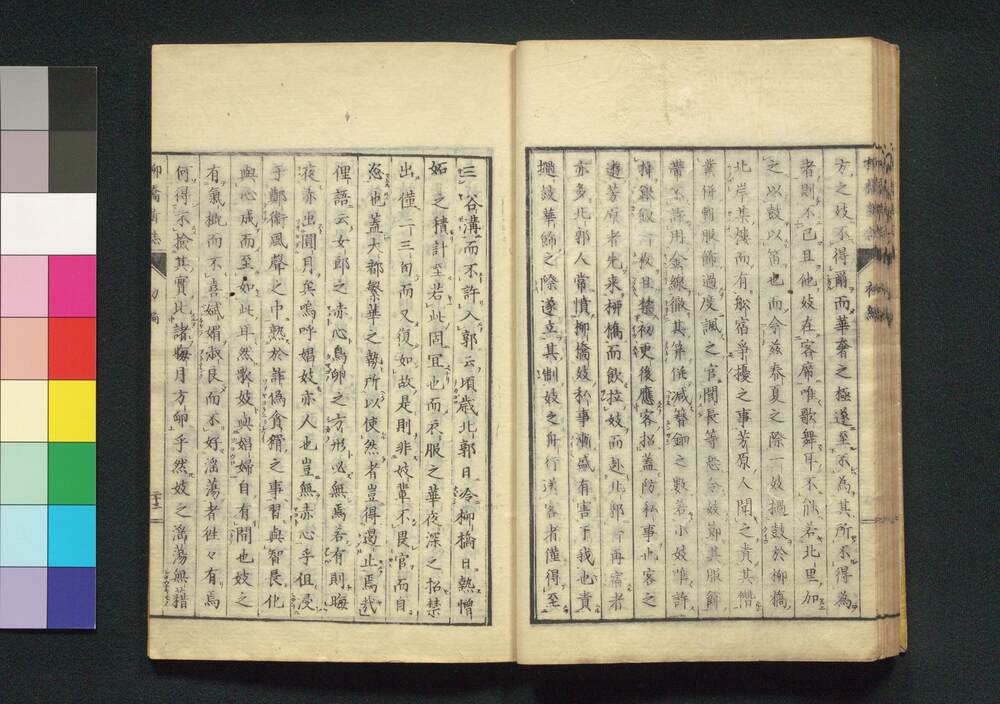 方之妓不得爾而華奢之極遂至不為其所不得為
者則不已且他妓在客席唯歌舞耳不能若北里加
之以鼓以笛也而今茲春夏之際一妓擂鼓於柳橋
北岸某樓而有舩宿爭擾之事芳原人聞之責其僭
業併斬服飾過度諷之官閭長等令妓鄭其服飾
帶不許用金線徹其笄僅減簪釵之數若小妓唯許
挿銀釵一枚且擔初更後應客招蓋防私事止客之
遊芳原者先来柳橋而飲拉妓而赴北郭再宿者
亦多北郭人常憤柳橋妓私事漸盛有害于我也責
擂鼓華飾之際遂立其制妓之舟行送客者僅得至
三谷溝而不許入郭云頃歳北郭日冷柳橋日熱憎
妬之積計至若此固宜也而衣服之華夜深之招禁
出僅二三旬而又復如故是則非妓輩不畏官而自
恣也蓋大都繁華之勢所以使然者豈得遏止焉哉
俚語云女郎之赤心鳥卵之方形必無焉若有則晦
夜亦出圓月矣嗚呼娼妓亦人也豈無赤心乎但長
于鄭衛風聲之中熟於詐偽貪猾之事習與智長化
與心成而至如此耳然歌妓與娼婦自有間也妓之
有氣概而不喜媚淑良而不好淫蕩者徃々有焉
何得不撿其實比諸晦月方卵乎然妓之淫蕩無藉
柳橋新誌
初編
二十二